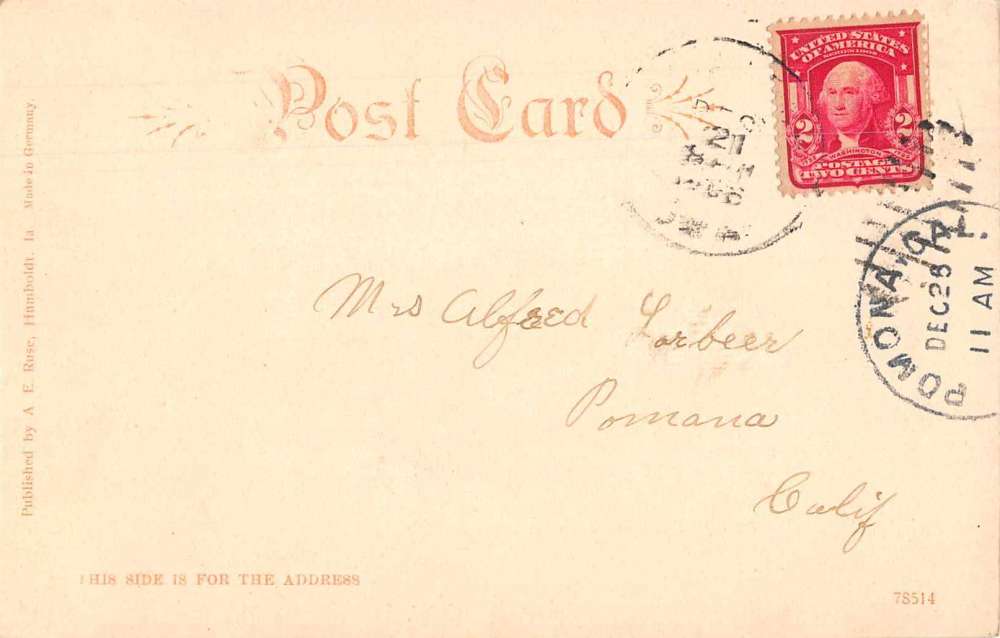 Post Card
UNITED STATES
OF AMERICA
2 2
WASHINGTON
POSTAGE
TWO CENTS
21
POMONA, CAL.
DEC 28
11 AM
Mrs Alfred Lorbeer
Pomana
Calif
Published by A. E. Ruse, Humboldt. Ia Made in Germany.
THIS SIDE IS FOR THE ADDRESS
78514